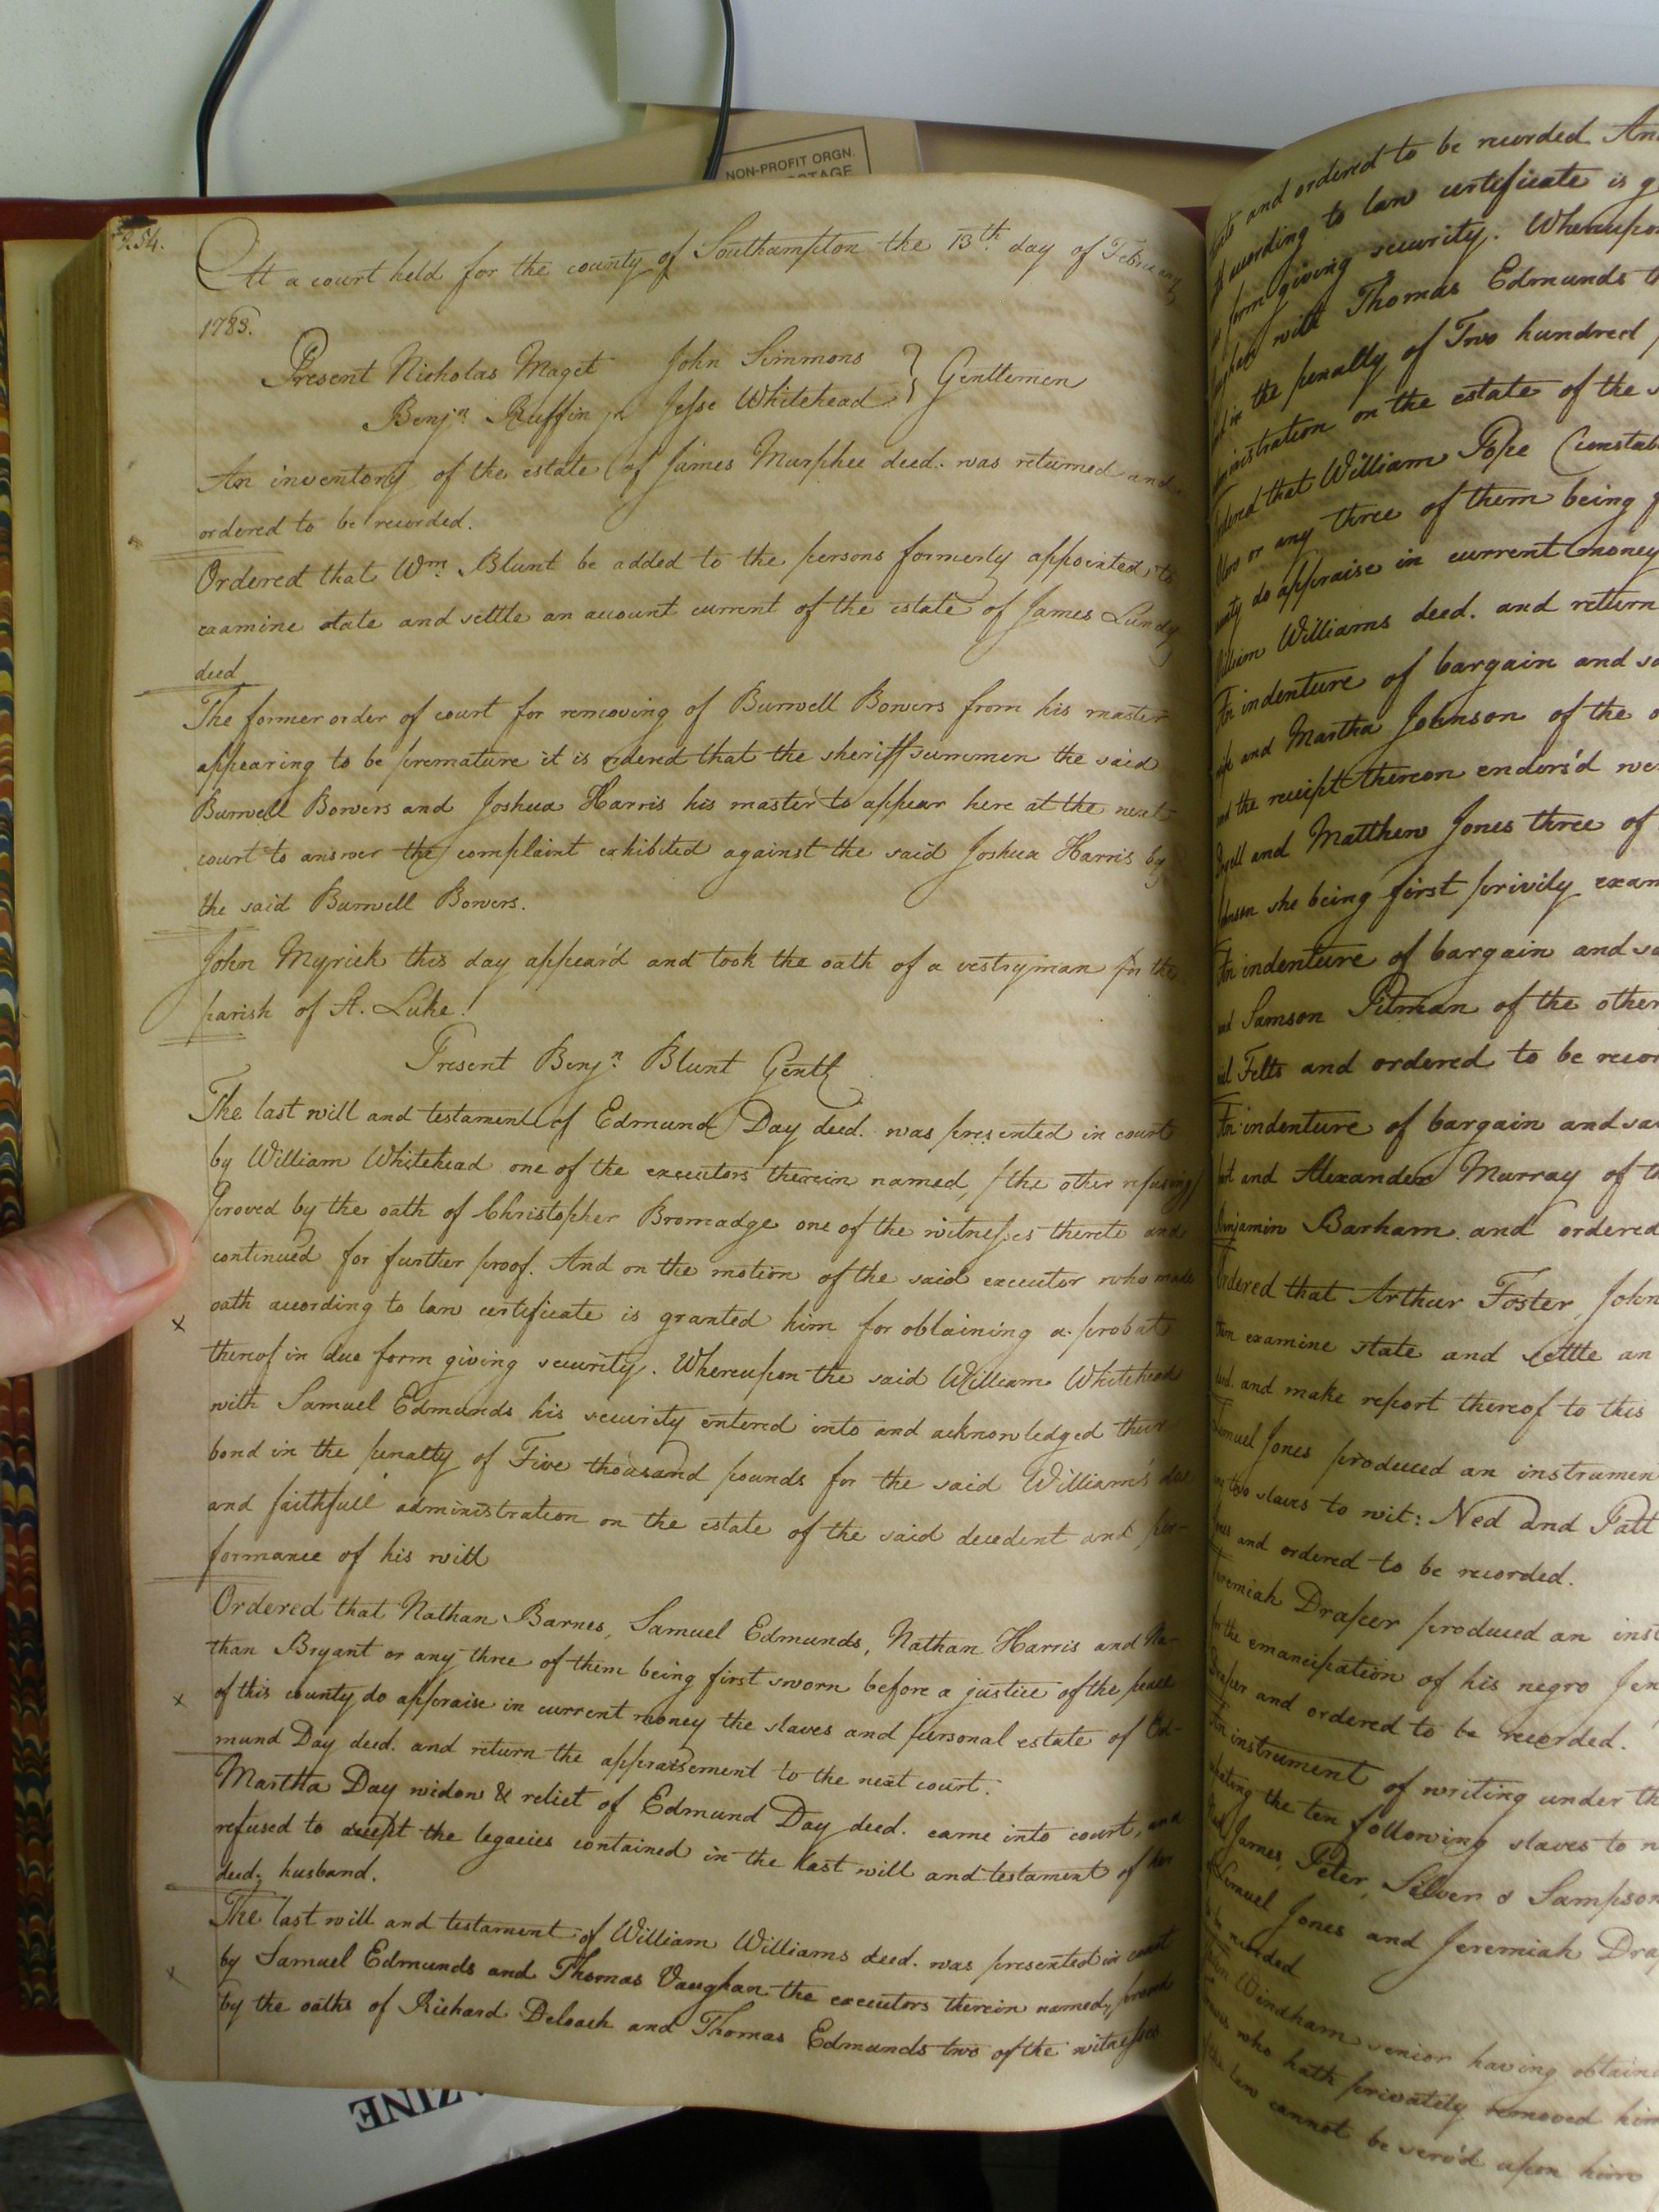 NON-PROFIT ORGN.
254.
At a court held for the county of Southampton the 13th day of February
1783.
Present Nicholas Maget John Simmons } Gentlemen
Benjn Ruffin jr Jesse Whitehead
An inventory of the estate of James Murphee decd. was returned and
ordered to be recorded.
Ordered that Wm. Blunt be added to the persons formerly appointed to
examine state and settle an account current of the estate of James Lundy
decd
The former order of court for removing of Burwell Bowers from his master
appearing to be premature it is ordered that the sheriff summon the said
Burwell Bowers and Joshua Harris his master to appear here at the next
court to answer the complaint exhibited against the said Joshua Harris by
the said Burwell Bowers.
John Myrick this day appear'd and took the oath of a vestryman for the
parish of St. Luke.
Present Benjn Blunt Gentl
The last will and testament of Edmund Day decd. was presented in court
by William Whitehead one of the executors therein named, (the other refusing)
proved by the oath of Christopher Bromadge one of the witnesses thereto and
continued for further proof. And on the motion of the said executor who made
x oath according to law certificate is granted him for obtaining a probat
thereof in due form giving security. Whereupon the said William Whitehead
with Samuel Edmunds his security entered into and acknowledged their
bond in the penalty of Five thousand pounds for the said William's due
and faithfull administration on the estate of the said decedent and per-
formance of his will
Ordered that Nathan Barnes, Samuel Edmunds, Nathan Harris and Na-
than Bryant or any three of them being first sworn before a justice of the peace
x of this county do appraise in current money the slaves and personal estate of Ed-
mund Day decd. and return the appraisement to the next court.
Martha Day widow & relict of Edmund Day decd. came into court, and
refused to accept the legacies contained in the last will and testament of her
decd. husband.
The last will and testament of William Williams decd. was presented in court
x by Samuel Edmunds and Thomas Vaughan the executors therein named, proved
by the oaths of Richard Deloach and Thomas Edmunds two of the witnesses
and ordered to be recorded An
according to law certificate is g
form giving security. Whereupon
with Thomas Edmunds
in the penalty of Two hundred
administration on the estate of the
Ordered that William Pope (constab
or any three of them being
county do appraise in current money
William Williams decd. and return
An indenture of bargain and sa
and Martha Johnson of the o
and the receipt thereon endors'd we
and Matthew Jones three of
Johnson she being first privily exam
An indenture of bargain and sa
and Samson Pitman of the other
Felts and ordered to be recor
An indenture of bargain and sa
part and Alexander Murray of th
Benjamin Barham and ordered
Ordered that Arthur Foster, John
them examine state and settle an
decd. and make report thereof to this
Lemuel Jones produced an instrumen
two slaves to wit: Ned and Patt
Jones and ordered to be recorded.
Jeremiah Draper produced an inst
for the emancipation of his negro Jen
Draper and ordered to be recorded.
An instrument of writing under th
the ten following slaves to w
James, Peter, Silver & Sampson
Lemuel Jones and Jeremiah Dra
to be recorded
Windham senior having obtain
who hath privately removed him
the law cannot be serv'd upon him
AZINE